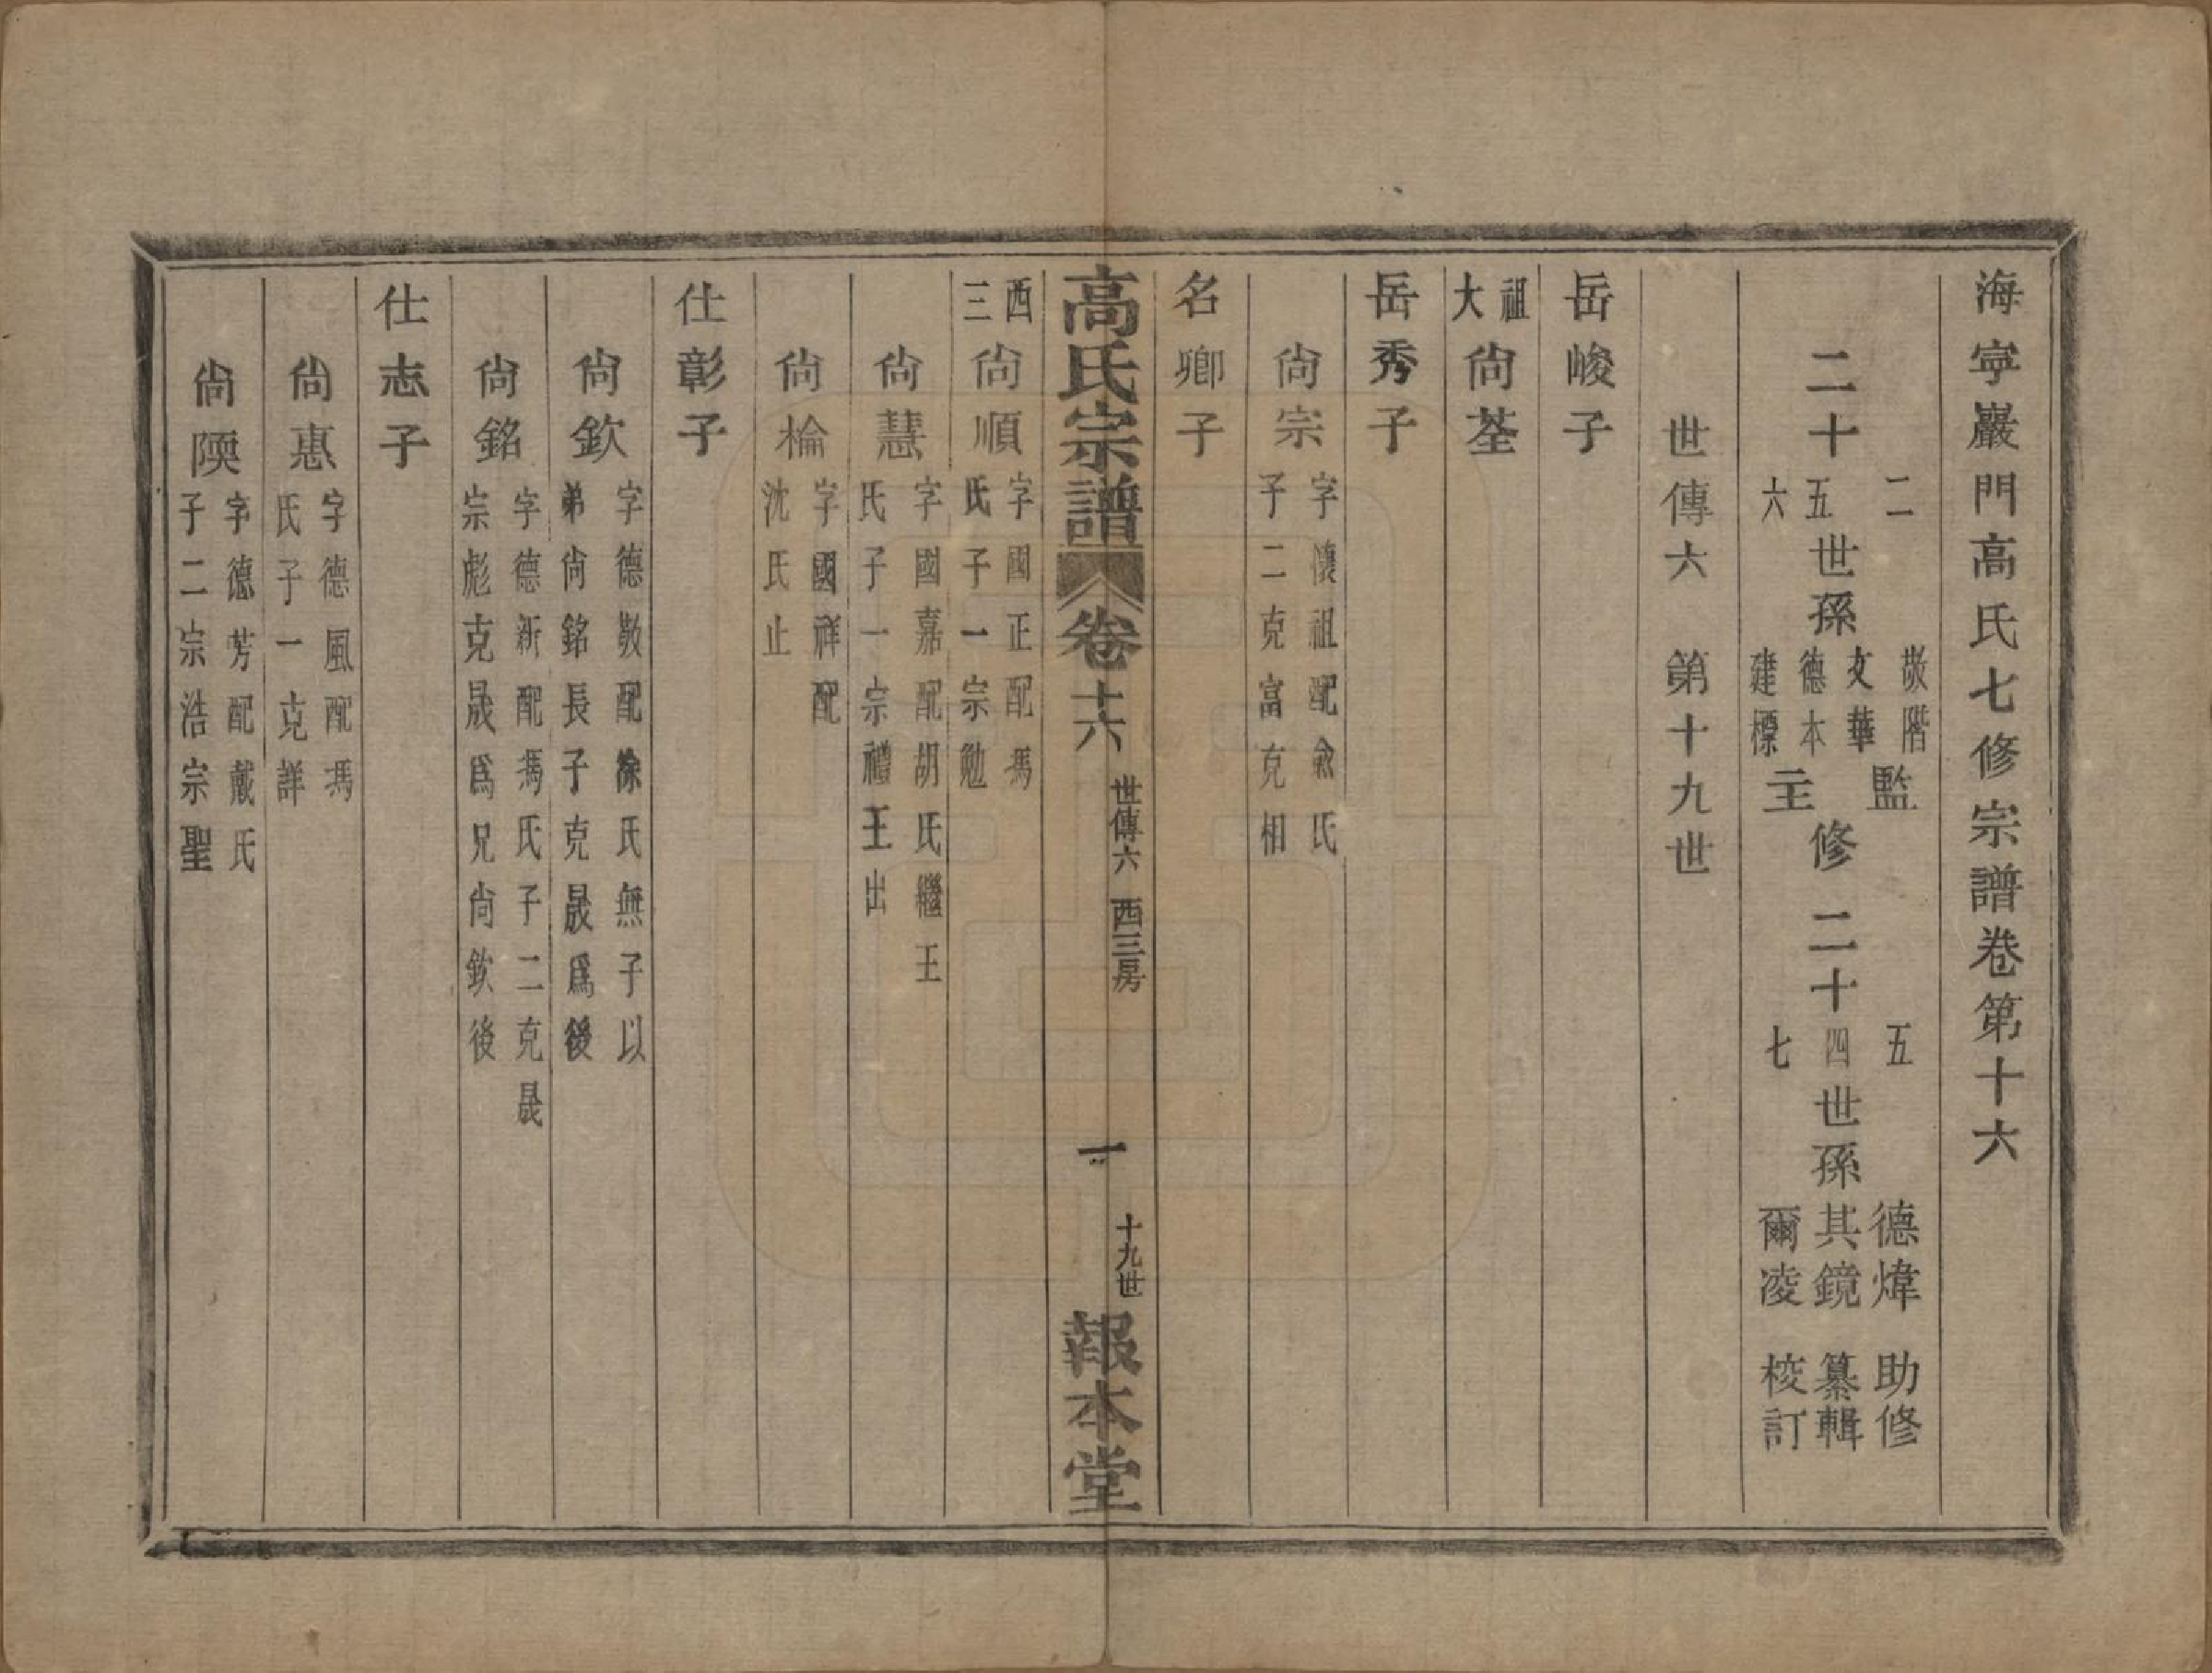 海寧巖門高氏七修宗譜卷第十六
二十 二 五 六 世孫 敬階 文華 德本 建標 監 主 修 二十 五 四 七 世孫 德煒 助修 其鏡 纂輯 爾凌 校訂
世傳六 第十九世
岳峻子
祖大 尙荃
岳秀子
尙宗 字懐祖配兪氏
子二克富克相
名卿子
高氏宗譜 卷十六 世傳六 西三房 一 十九世 報本堂
西三 尙順 字國正配馮
氏子一宗勉
尙慧 字國嘉配胡氏繼王
氏子一宗禮王出
尙棆 字國祥配
沈氏止
仕彰子
尙欽 字德敬配徐氏無子以
弟尙銘長子克晟爲後
尙銘 字德新配馮氏子二克晟
宗彪克晟爲兄尙欽後
仕志子
尙惠 字德風配馮
氏子一克詳
尙 字德芳配戴氏
子二宗浩宗聖